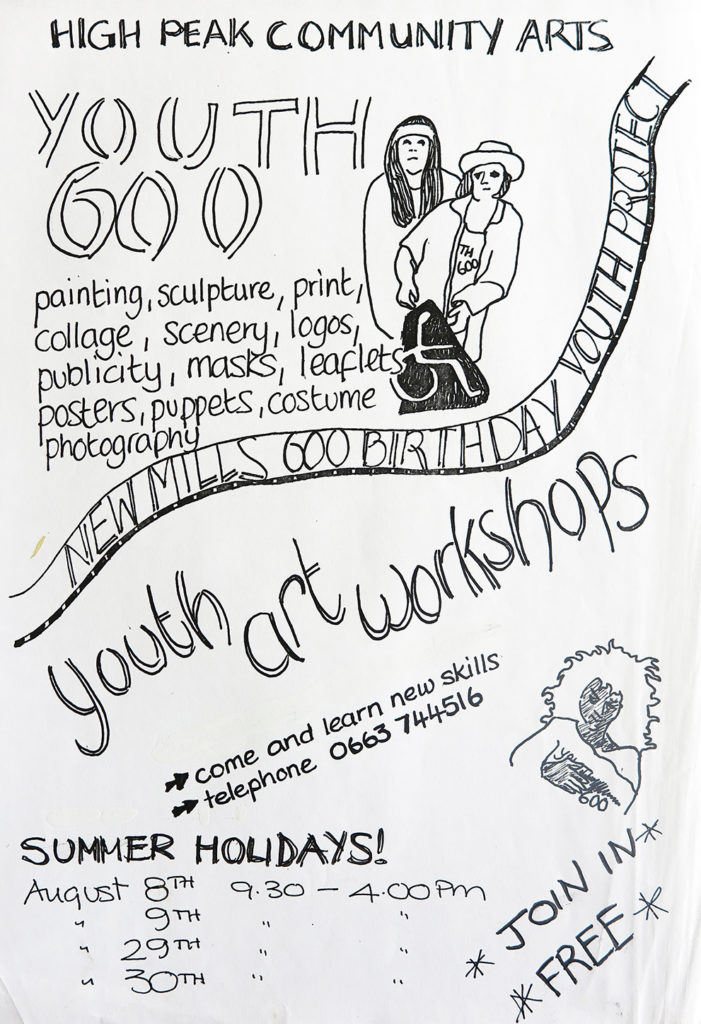 HIGH PEAK COMMUNITY ARTS
YOUTH
600
TH
600
painting, sculpture, print,
collage, scenery, logos,
publicity, masks, leaflets
posters, puppets, costume
photography
NEW MILLS 600 BIRTHDAY YOUTH PROJECT
youth art workshops
come and learn new skills
telephone 0663 744516
600
SUMMER HOLIDAYS!
August 8TH 9.30 - 4.00pm
" 9TH " "
" 29TH " "
" 30TH " "
* JOIN IN *
* FREE *